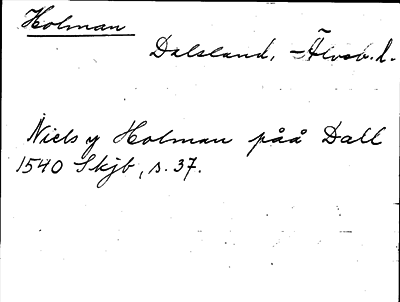 Holman
Dalsland, Älvsb. l.
Niels y Holman påå Dall
1540 Skjb, s. 37.